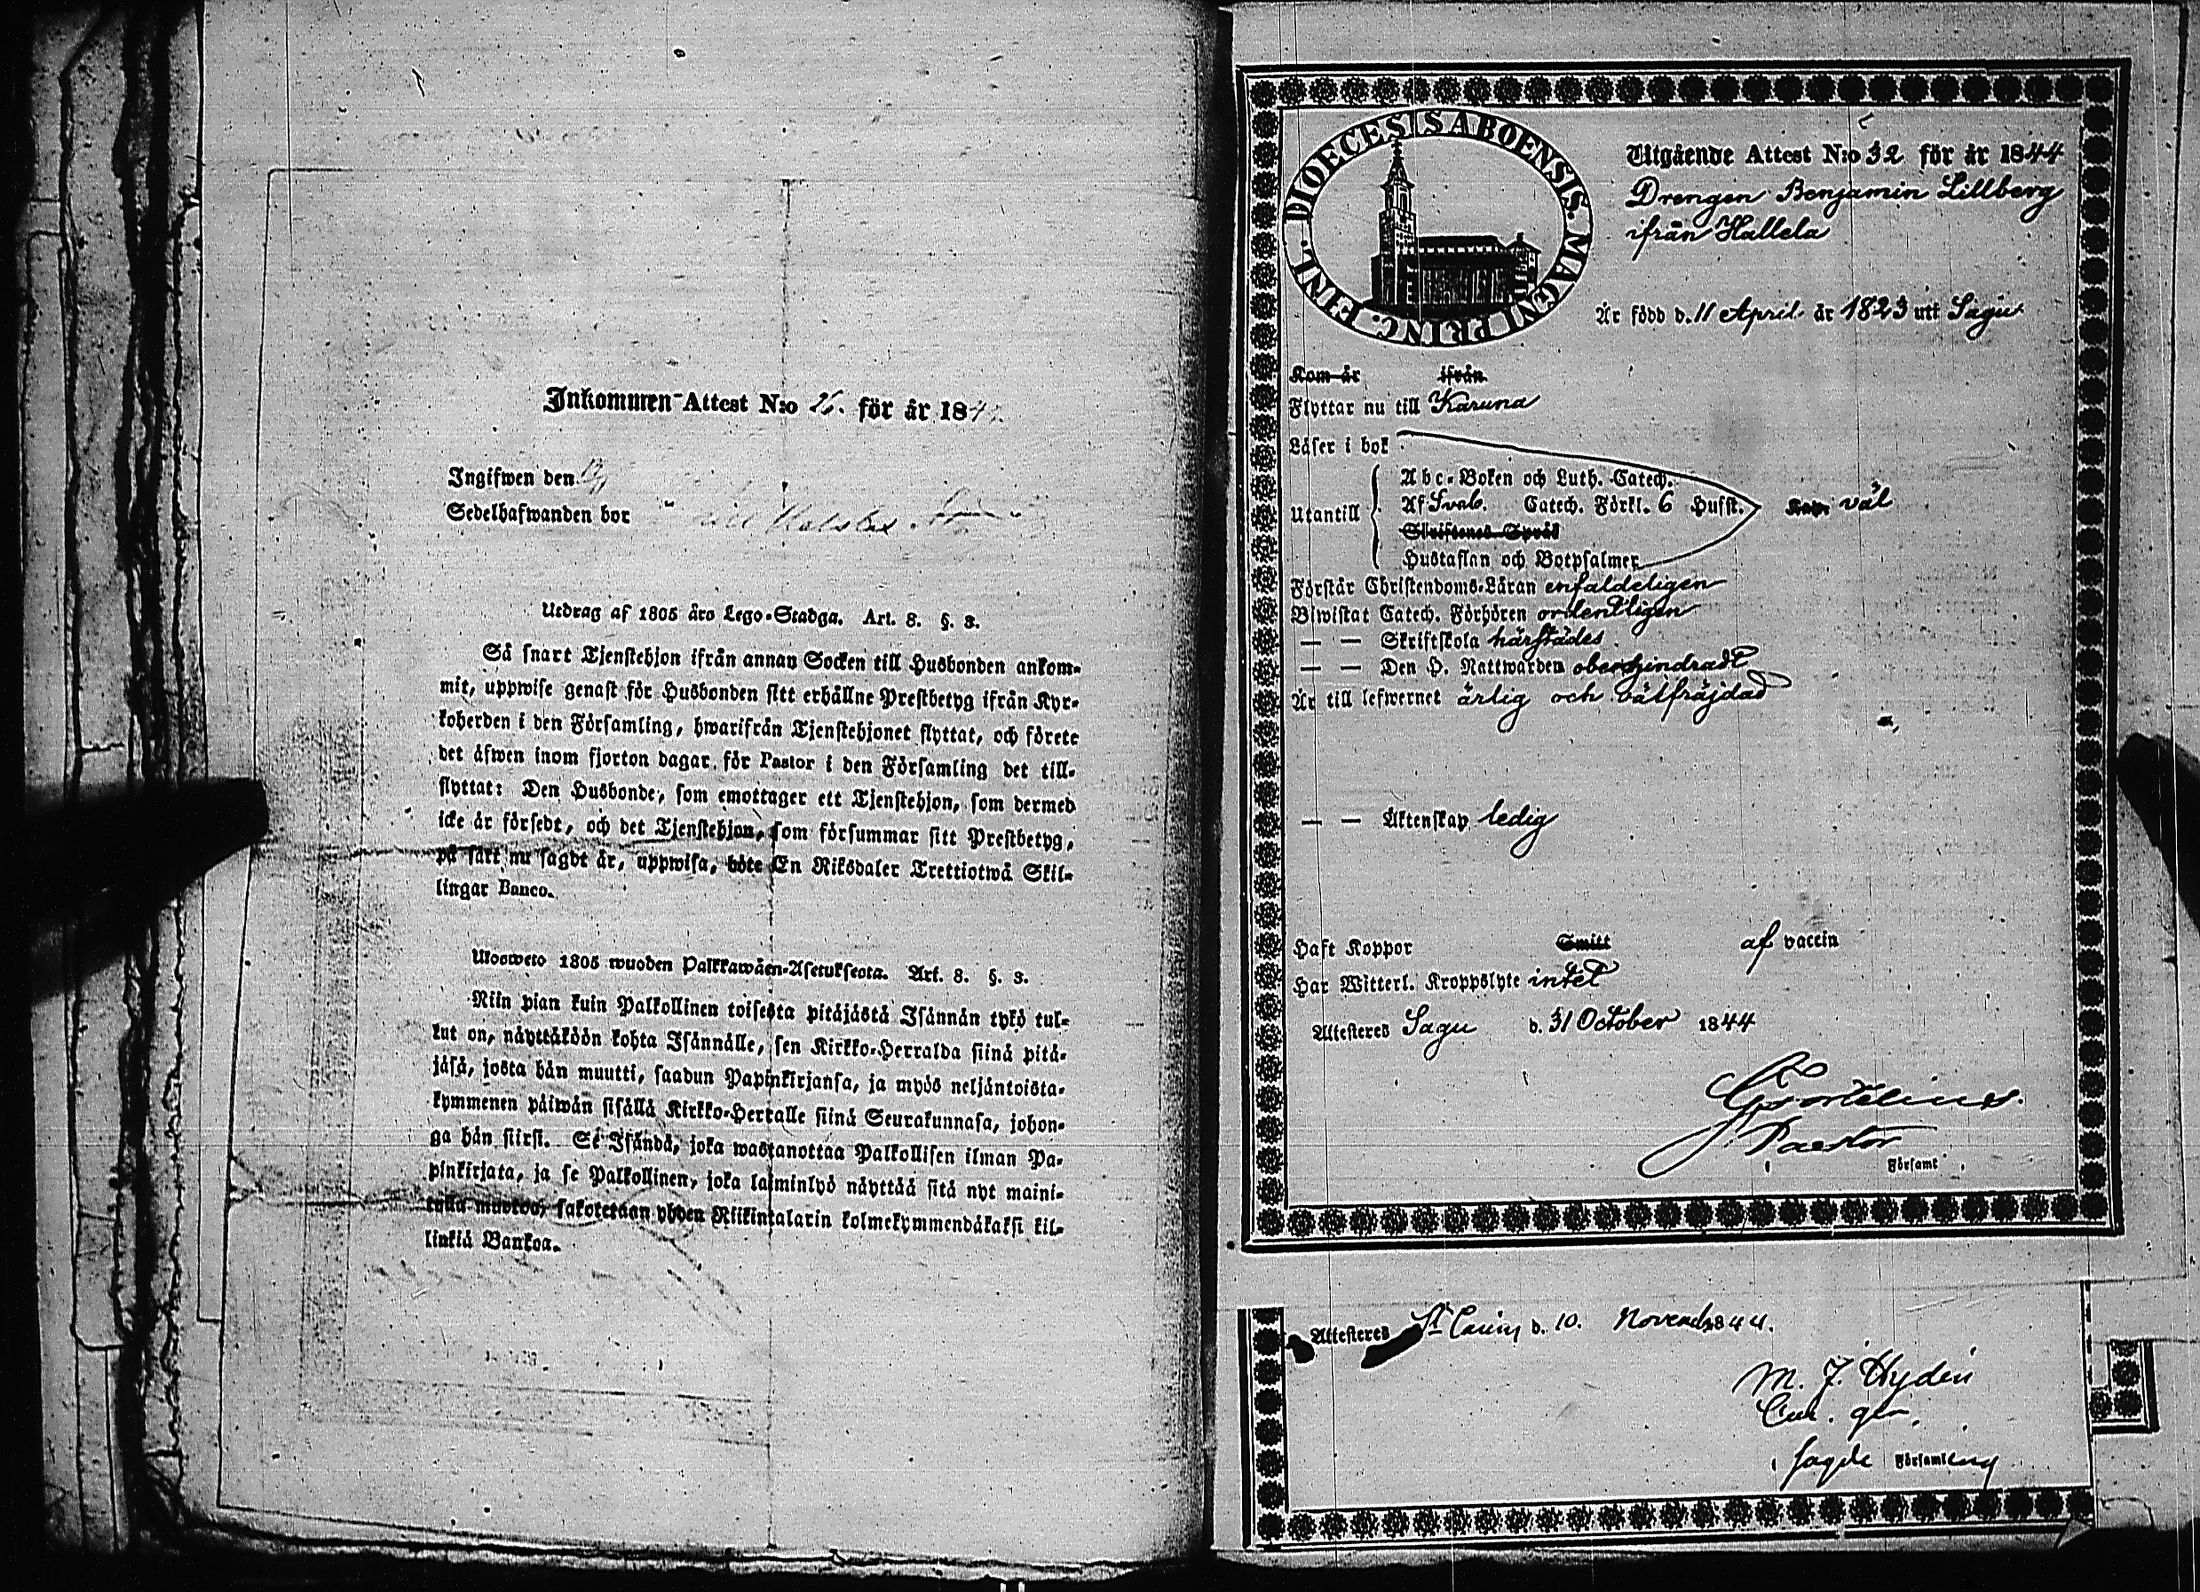 Inkommen-Attest N:o 26. för år 184
Ingifwen den
Sedelhafwanden bor till
Utdrag af 1805 års Lego-Stadga. Art. 8. §. 3.
Så snart Tjenstehjon ifrån annan Socken till Husbonden ankom-
mit, uppwise genast för Husbonden sitt erhållne Prestbetyg ifrån Kyr-
koherden i den Församling, hwarifrån Tjenstehjonet flyttat, och förete
det äfwen inom fjorton dagar för Pastor i den Församling det till-
flyttat: Den Husbonde, som emottager ett Tjenstehjon, som dermed
icke är försedt, och det Tjenstehjon, som försummar sitt Prestbetyg,
på sätt nu sagdt är, uppwisa, böte En Riksdaler Trettiotwå Skil-
lingar Banco.
Ulosweto 1805 wuoden Palkkawäen-Asetuksesta. Art. 8. §. 3.
Niin pian kuin Palkollinen toisesta pitäjästä Isännän tykö tul-
lut on, näyttäköön kohta Isännälle, sen Kirkko-Herralda siinä pitä-
jäsä, josta hän muutti, saadun Papinkirjansa, ja myös neljäntoista-
kymmenen päiwän sisällä Kirkko-Herralle siinä Seurakunnasa, johon-
ga hän siirsi. Se Isändä, joka wastanottaa Palkollisen ilman Pa-
pinkirjata, ja se Palkollinen, joka laiminlyö näyttää sitä nyt maini-
tulla muotoo, sakotetaan yhden Riikintalarin kolmekymmendäkaksi kil-
linkiä Bankoa.
DIOECESIS ABOENSIS. MAGNI PRINC. FINL.
Utgående Attest N:o 32 för år 1844
Drengen Benjamin Lillberg
ifrån Hallela
Är född d. 11 April år 1823 uti Sagu
Kom år ifrån
Flyttar nu till Karuna
Läser i bok
Utantill
Abc-Boken och Luth. Catech.
Af Svab. Catech. Förkl. 6 Hufst. Kap. väl
Skriftenes Språk
Hustaflan och Botpsalmer
Förstår Christendoms-Läran enfaldeligen
Biwistat Catech. Förhören ordentligen
— — Skriftskola härstädes
— — Den H. Nattwarden obehindradt
Är till lefwernet ärlig och välfräjdad
— — Äktenskap ledig
Haft Koppor Smitt af vaccin
Har Witterl. Kroppslyte intet
Attesteres Sagu d. 31 October 1844
Pastor
Församl
Attesteres St d. 10. Novemb 1844.
M. J. Hydén
Församling